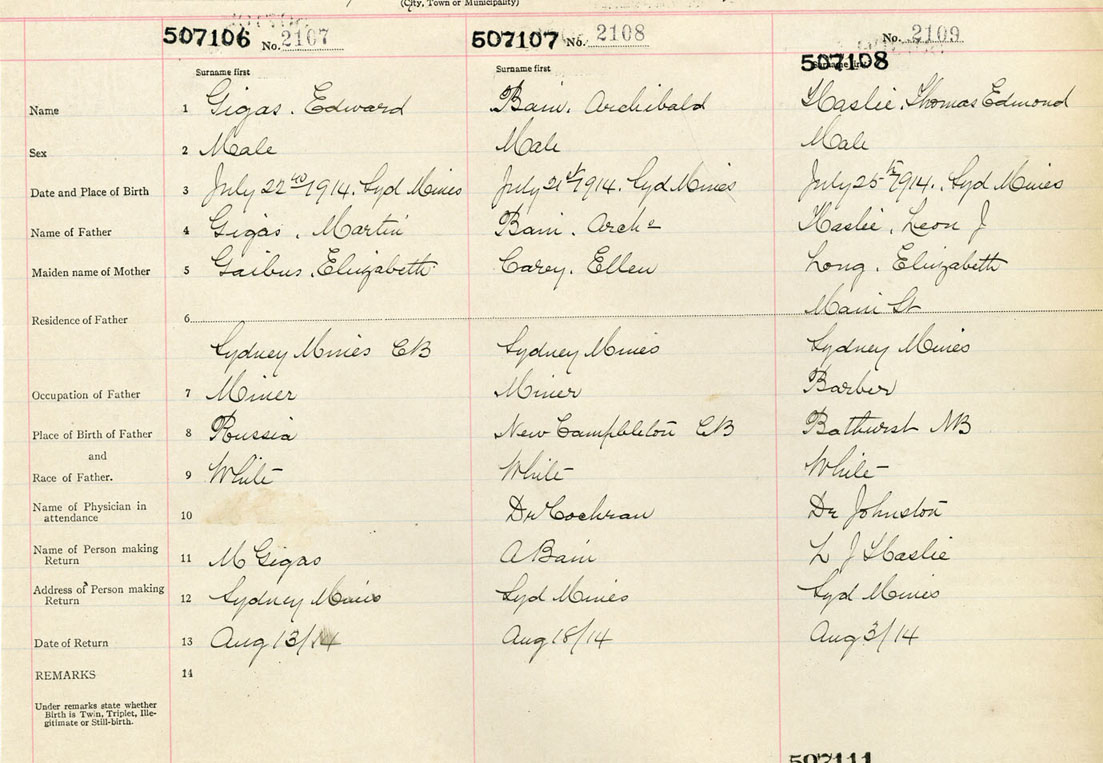 (City, Town or Municipality)
507106 No. 2107 507107 No. 2108 No. 2109
507108
Surname first Surname first Surname first
Name 1 Gigas. Edward Bain. Archibald Haslie. Thomas Edmond
Sex 2 Male Male Male
Date and Place of Birth 3 July 22nd 1914. Syd Mines July 21st 1914. Syd Mines July 25th 1914. Syd Mines
Name of Father 4 Gigas. Martin Bain. Archd Haslie. Leon J
Maiden name of Mother 5 Gaibus. Elizabeth Carey. Ellen Long. Elizabeth
Main St
Residence of Father 6
Sydney Mines CB Sydney Mines Sydney Mines
Occupation of Father 7 Miner Miner Barber
Place of Birth of Father 8 Russia New Campbleton CB Bathurst NB
and
Race of Father. 9 White White White
Name of Physician in
attendance 10 Dr Cochran Dr Johnston
Name of Person making
Return 11 M Gigas A Bain L J Haslie
Address of Person making
Return 12 Sydney Mines Syd Mines Syd Mines
Date of Return 13 Aug 13/14 Aug 18/14 Aug 3/14
REMARKS 14
Under remarks state whether
Birth is Twin, Triplet, Ille-
gitimate or Still-birth.
507111